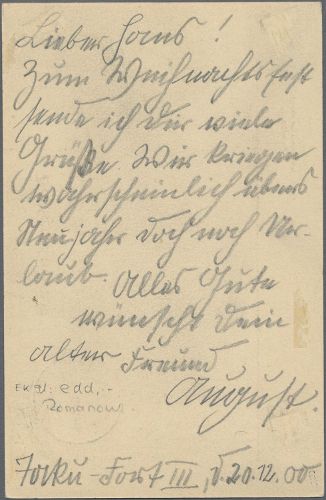 Lieber Hans!
Zum Weihnachtsfest
sende ich dir viele
Grüße. Wir kriegen
wahrscheinlich übers
Neujahr doch noch Ur-
laub. Alles Gute
wünscht dein
alter Freund
August.
EK gl. edd,-
Romanow
Taku-Fort III, d. 20.12.00